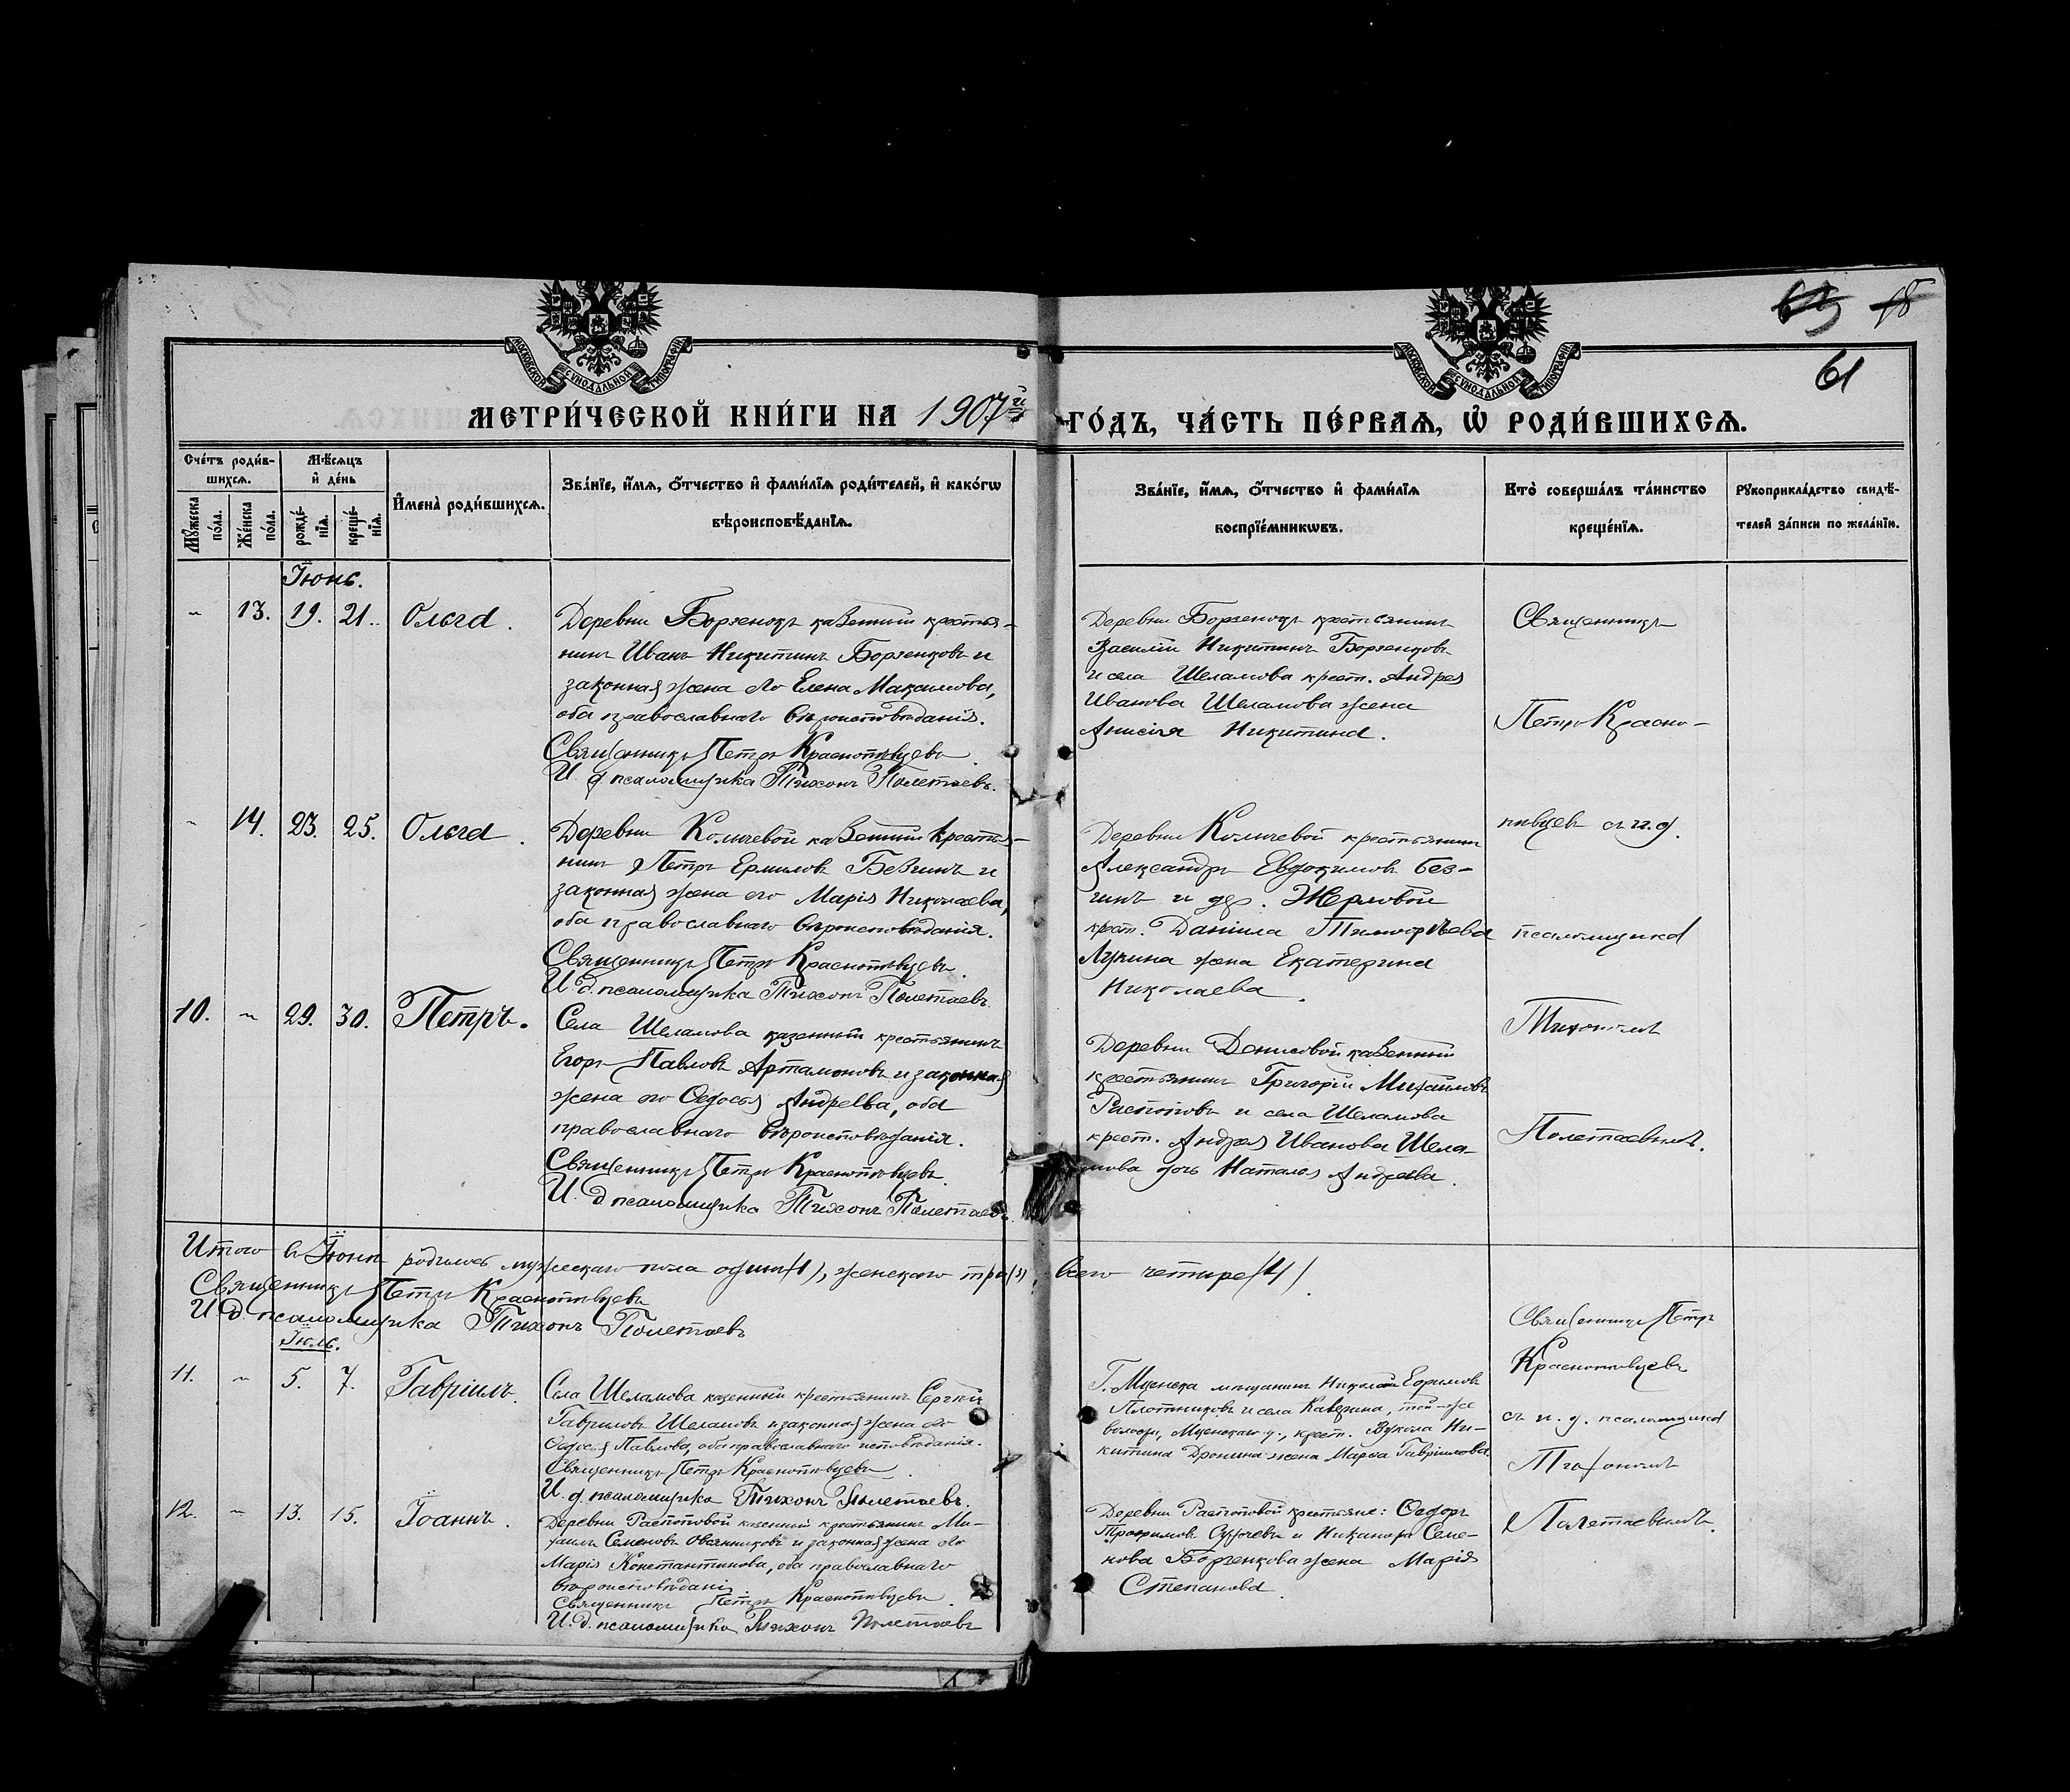 МОСКОВСКОЙ СѴНОДАЛЬНОЙ ТИПОГРАФІИ
МОСКОВСКОЙ СѴНОДАЛЬНОЙ ТИПОГРАФІИ
18
61
МЕТРИ́ЧЕСКОЙ КНИ́ГИ НА 1907й ГО́ДЪ, ЧА́СТЬ ПЕ́РВАѦ, Ѡ҆ РОДИ́ВШИХСѦ.
Сче́тъ роди́в-
шихсѧ.
Мѣ́сѧцъ
и҆ де́нь
Мꙋ́жеска
по́ла.
Же́нска
по́ла.
рожде́-
нїѧ.
креще́-
нїѧ.
И҆мена̀ роди́вшихсѧ.
Зва́нїе, и҆́мѧ, ѻ҆́тчество и҆ фами́лїѧ роди́телей, и҆ како́гѡ
вѣроисповѣ́данїѧ.
Зва́нїе, и҆́мѧ, ѻ҆́тчество и҆ фами́лїѧ
воспрїе́мникѡвъ.
Кто̀ соверша́лъ та́инство
креще́нїѧ.
Рꙋкоприкла́дство свидѣ́-
телей за́писи по жела́нїю.
Іюнь.
13. 19. 21. Ольга.
Деревни Борзенокъ казенный крестья-
нинъ Иванъ Никитинъ Борзенковъ и
законная жена его Елена Максимова,
оба православнаго вѣроисповѣданія.
Священникъ Петръ Краснопѣвцевъ.
И. д. псаломщика Тихонъ Полетаевъ.
Деревни Борзенокъ крестьянинъ
Василій Никитинъ Борзенковъ
и села Шеламова крест. Андрея
Иванова Шеламова жена
Анисія Никитина.
Священникъ
Петръ Красно-
14. 23. 25. Ольга.
Деревни Колычевой казенный кресть-
нинъ Петръ Ермиловъ Безгинъ и
законная жена его Марія Николаева,
оба православнаго вѣроисповѣданія.
Священникъ Петръ Краснопѣвцевъ.
И. д. псаломщика Тихонъ Полетаевъ.
Деревни Колычевой крестьянинъ
Александръ Евдокимовъ Без-
гинъ и дер. Жерловой
крест. Даніила Тимофѣева
Лукина жена Екатерина
Николаева.
пѣвцевъ съ и. д.
псаломщика
10. 29. 30. Петръ.
Села Шеламова казенный крестьянинъ
Егоръ Павловъ Артамоновъ и законная
жена его Ѳедосья Андреева, оба
православнаго вѣроисповѣданія.
Священникъ Петръ Краснопѣвцевъ.
И. д. псаломщика Тихонъ Полетаевъ.
Деревни Денисовой казенный
крестьянинъ Григорій Михайловъ
Распоповъ и села Шеламова
крест. Андрея Иванова Шела-
мова дочь Наталья Андреева.
Тихономъ
Полетаевымъ.
Итого въ Іюнѣ родилось мужескаго пола одинъ (1), женскаго три (3), всего четыре (4).
Священникъ Петръ Краснопѣвцевъ
И. д. псаломщика Тихонъ Полетаевъ
Іюль.
11. 5. 7. Гавріилъ.
Села Шеламова казенный крестьянинъ Сергѣй
Гавриловъ Шеламовъ и законная жена его
Ѳедосья Павлова, оба православнаго исповѣданія.
Священникъ Петръ Краснопѣвцевъ.
И. д. псаломщика Тихонъ Полетаевъ.
Г. Мценска мѣщанинъ Николай Ефимовъ
Плотниковъ и села Каверина, той-же
волости, Мценскаго у., крест. Вукола Ни-
китина Дронина жена Марѳа Гавріилова.
Священникъ Петръ
Краснопѣвцевъ
съ и. д. псаломщика
Тихономъ
12. 13. 15. Іоаннъ.
Деревни Распоповой казенный крестьянинъ Ми-
хаилъ Семеновъ Овсянниковъ и законная жена его
Марія Константинова, оба православнаго
вѣроисповѣданія.
Священникъ Петръ Краснопѣвцевъ.
И. д. псаломщика Тихонъ Полетаевъ
Деревни Распоповой крестьяне: Ѳедоръ
Трофимовъ и Никанора Семе-
нова Борзенкова жена Марія
Степанова.
Полетаевымъ.